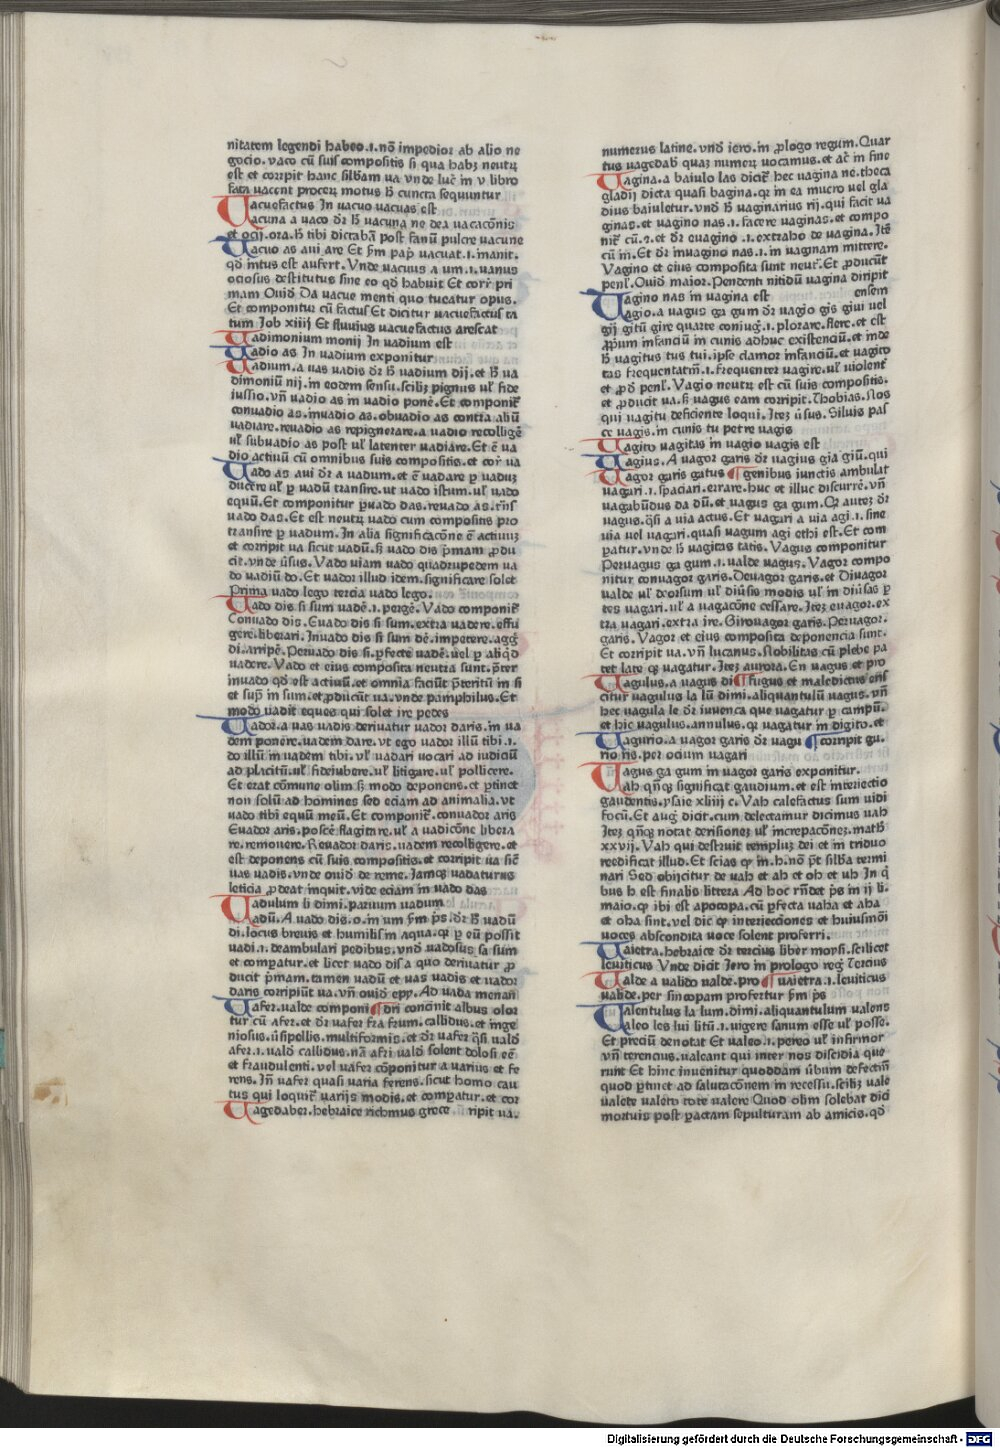 nitatem legendi habeo.i.nō impedior ab alio ne
gocio. vaco cū suis compositis si qua habꝫ neutꝝ
est et corripit hanc sillbam ua vnde luc̄ in v libro
fata vacent proceꝝ motus ꝫ cuncta sequuntur
Uacuefactus In uacuo uacuas est
Uacuna a uaco dr̄ ħ uacuna ne dea uacacōnis
et ocij.ora.ħ tibi dictabā post fanū pulcre uacune
Uacuo as aui are Et ẜm pap̄ uacuat.i.inanit.
qd̄ intus est aufert. Vnde uacuus a um.i.uanus
ociosus destitutus sine eo qd̄ habuit Et corr̄ pri
mam Ouid̄ Da uacue menti quo tueatur opus.
Et componitur cū factus Et dicitur uacuefactus ta
tum Iob xiiij Et fluvius uacuefactus arescat
Uadimonium monij In uadium est
Uadio as In uadium exponitur
Uadium.a uas uadis dr̄ ħ uadium dij.et ħ ua
dimoniū nij.in eodem sensu.scilicꝫ pignus ul̄ fide
iussio.vn̄ uadio as in uadio ponē.Et componit̄
conuadio as.inuadio as.obuadio as contra aliū
uadiare.reuadio as repignerare.a uadio recolligē
ul̄ subuadio as post ul̄ latenter uadiare.Et ē ua
dio actiuū cū omnibus suis compositis.et cor̄ ua
Uado as aui dr̄ a uadum.et ē uadare ꝑ uaduꝫ
ducere ul̄ ꝑ uadū transire.ut uado istum.ul̄ uado
equū.Et componitur ꝑuado das.reuado as.trāſ
uado das.Et est neutꝝ uado cum compositis pro
transire ꝑ uadum.In alia significacōne ē actiuuꝫ
et corripit ua sicut uadū.ẜ uado dis ṗmam ꝓdu
cit.vnde ūsus.Vado uiam uado quadrupedem ua
do uadiū do.Et uador illud idem.significare solet
Prima uado lego tercia uado lego.
Uado dis si sum uadē.i.pergē.Vado componit̄
Conuado dis.Euado dis si sum.extra uadere.effu
gere.liberari.Inuado dis si sum dē.impetere.agḡ
di.arripē.Peruado dis si.ꝑfecte uadē.uel ꝑ aliqd̄
uadere.Vado et eius composita neutra sunt.p̄ter
inuado qd̄ est actiuū.et omnia faciūt p̄teritū in si
et sup̄ in sum.et ꝓducūt ua.vnde pamphilus.Et
modo uadit eques qui solet ire pedes
Uador.a uas uadis deriuatur uador daris.in ua
dem ponere.uadem dare.vt ego uador illū tibi.i.
do illū in uadem tibi.ul̄ uadari uocari ad iudiciū
ad placitū.ul̄ fideiubere.ul̄ litigare.ul̄ pollicere.
Et erat cōmune olim ẜꝫ modo deponens.et ꝑtinet
non solū ad homines sed eciam ad animalia.vt
uado tibi equū meū.Et componit̄.conuador aris
Euador aris.poscē.flagitare.ul̄ a uadicōne libera
re.remouere.Reuador daris.uadem recolligere.et
est deponens cū suis compositis.et corripit ua sic̄
uas uadis.vnde ouid̄ de reme.Iamqꝫ uadaturus
leticia ꝓdeat inquit.vide eciam in uado das
Uadulum li dimi.paruum uadum
Uadū.A uado dis.o.in um ẜm ṗs.dr̄ ħ uadū
di.locus breuis et humilis in aqua.qꝫ ꝑ eū possit
uadi.i.deambulari pedibus.vnd̄ uadosus sa sum
et comꝑatur.et licet uado dis a quo deriuatur ꝓ
ducit ṗmam.tamen uadū et uas uadis et uador
daris corripiūt ua.vn̄ ouid̄ epp̄.Ad uada menan
Uafer.ualde componi ¶ dri concinit albus olor
tur cū afer.et dr̄ uafer fra frum.callidus.et inge
niosus.ūsipellis.multiformis.et dr̄ uafer q̄si uald̄
afer.i.uald̄ callidus.nā afri uald̄ solent dolosi eē
et fraudulenti.vel uafer cōponitur a uarius et fe
rens.In̄ uafer quasi uaria ferens.sicut homo cau
tus qui loquit̄ uarijs modis.et comꝑatur.et cor
Uagedaber.hebraice richmus grece ripit ua.
numerus latine.vnd̄ iero.in ꝓlogo regum.Quar
tus uagedab quaꝫ numerꝫ uocamus.et ac̄ in fine
Uagina.a baiulo las dicit̄ hec uagina ne.theca
gladij dicta quasi bagina.qꝫ in ea mucro uel gla
dius baiuletur.vnd̄ ħ uaginarius rij.qui facit ua
ginas.et uagino nas.i.facere uaginas.et compo
nit̄ cū.e.et dr̄ euagino.i.extrabo de uagina.Itē
cū in.Et dr̄ inuagino nas.i.in uaginam mittere.
Vagino et eius composita sunt neut̄.Et ꝓducūt
penl̄.Ouid̄ maior.Pendenti nitidū uagina diripit
Uagino nas in uagina est ensem
Uagio.a uagus ga gum dr̄ uagio gis giui uel
gij gitū gire quarte coniuḡ.i.plorare.flere.et est
ꝓpriū infanciū in cunis adhuc existenciū.et inde
ħ uagitus tus tui.ipse clamor infanciū.et uagito
tas frequentatiū.i.frequenter uagire.ul̄ uiolent̄
et ꝓd̄ penl̄.Vagio neutꝝ est cū suis compositis.
et ꝓducit ua.ẜꝫ uagus eam corripit.Thobias.Nos
qui uagitu deficiente loqui.Iteꝫ ūsus.Siluis pas
ce uagis.in cunis tu petre uagis
Uagito uagitas in uagio uagis est
Uagius.A uagor garis dr̄ uagius gia giū.qui
Uagor garis gatus ¶ genibus iunctis ambulat
uagari.i.spaciari.errare.huc et illuc discurrē.vn̄
uagabūdus da dū.et uagus ga gum.Qꝫ auteꝫ dr̄
uagus.q̄si a uia actus.Et uagari a uia agi.i.sine
uia uel uagari.quasi uagum agi ethi est.Et com
ꝑatur.vnde ħ uagitas tatis.Vagus componitur
Peruagus ga gum.i.ualde uagus.Vagor compo
nitur conuagor garis.Deuagor garis.et Diuagor
ualde ul̄ deorsum ul̄ diūsis modis ul̄ in diūsas ꝑ
tes uagari.ul̄ a uagacōne cessare.Iteꝫ euagor.ex
tra uagari.extra ire.Girouagor garis.Peruagor.
garis.Vagor et eius composita deponencia sunt.
Et corripit ua.vn̄ lucanus.Nobilitas cū plebe pa
tet late qꝫ uagatur.Iteꝫ aurora.En uagus et pro
Uagulus.a uagus di ¶ fugus et maledictus eris
citur uagulus la lū dimi.aliquantulū uagus.vn̄
hec uagula le dr̄ iuuenca que uagatur ꝑ campū.
et hic uagulus.annulus.qꝫ uagatur in digito.et
Uagurio.a uagor garis dr̄ uagu ¶ corripit gu.
rio ris.per ocium uagari
Uagus ga gum in uagor garis exponitur.
Uah qn̄qꝫ significat gaudium.et est interiectio
gaudentis.ysaie xliiij c.Vah calefactus sum uidi
focū.Et auḡ dicit.cum delectamur dicimus uah
Iteꝫ qn̄qꝫ notat derisioneꝫ ul̄ increpacōneꝫ.math̄
xxvij.Vah qui destruit templuꝫ dei et in triduo
reedificat illud.Et scias qꝫ in.h.nō p̄t silba termi
nari Sed obijcitur de uah et ah et oh et uh In q̄
bus h est finalis littera Ad hoc rn̄det ṗs in ij li.
maio.qꝫ ibi est apocopa.cū ꝑfecta uaha et aha
et oha sint.vel dic qꝫ interiecciones et huiusmōi
uoces abscondita uoce solent proferri.
Uaietra.hebraice dr̄ tercius liber moysi.scilicet
leuiticus Vnde dicit Iero in prologo reḡ Tercius
Ualde a ualido ualde.pro ¶ uaietra.i.leuiticus
ualide.per sincopam profertur ẜm ṗs
Ualentulus la lum.dimi.aliquantulum ualens
Ualeo les lui litū.i.uigere sanum esse ul̄ posse.
Et preciū denotat Et ualeo.i.pereo ul̄ infirmor
vn̄ terencius.ualeant qui inter nos discidia que
runt Et hinc inuenitur quoddam ūbum defectiū
quod ꝑtinet ad salutacōnem in recessu.scilicꝫ uale
ualete ualeto tote ualere Quod olim solebat dici
mortuis post ꝑactam sepulturam ab amicis.qd̄
Digitalisierung gefördert durch die Deutsche Forschungsgemeinschaft - DFG